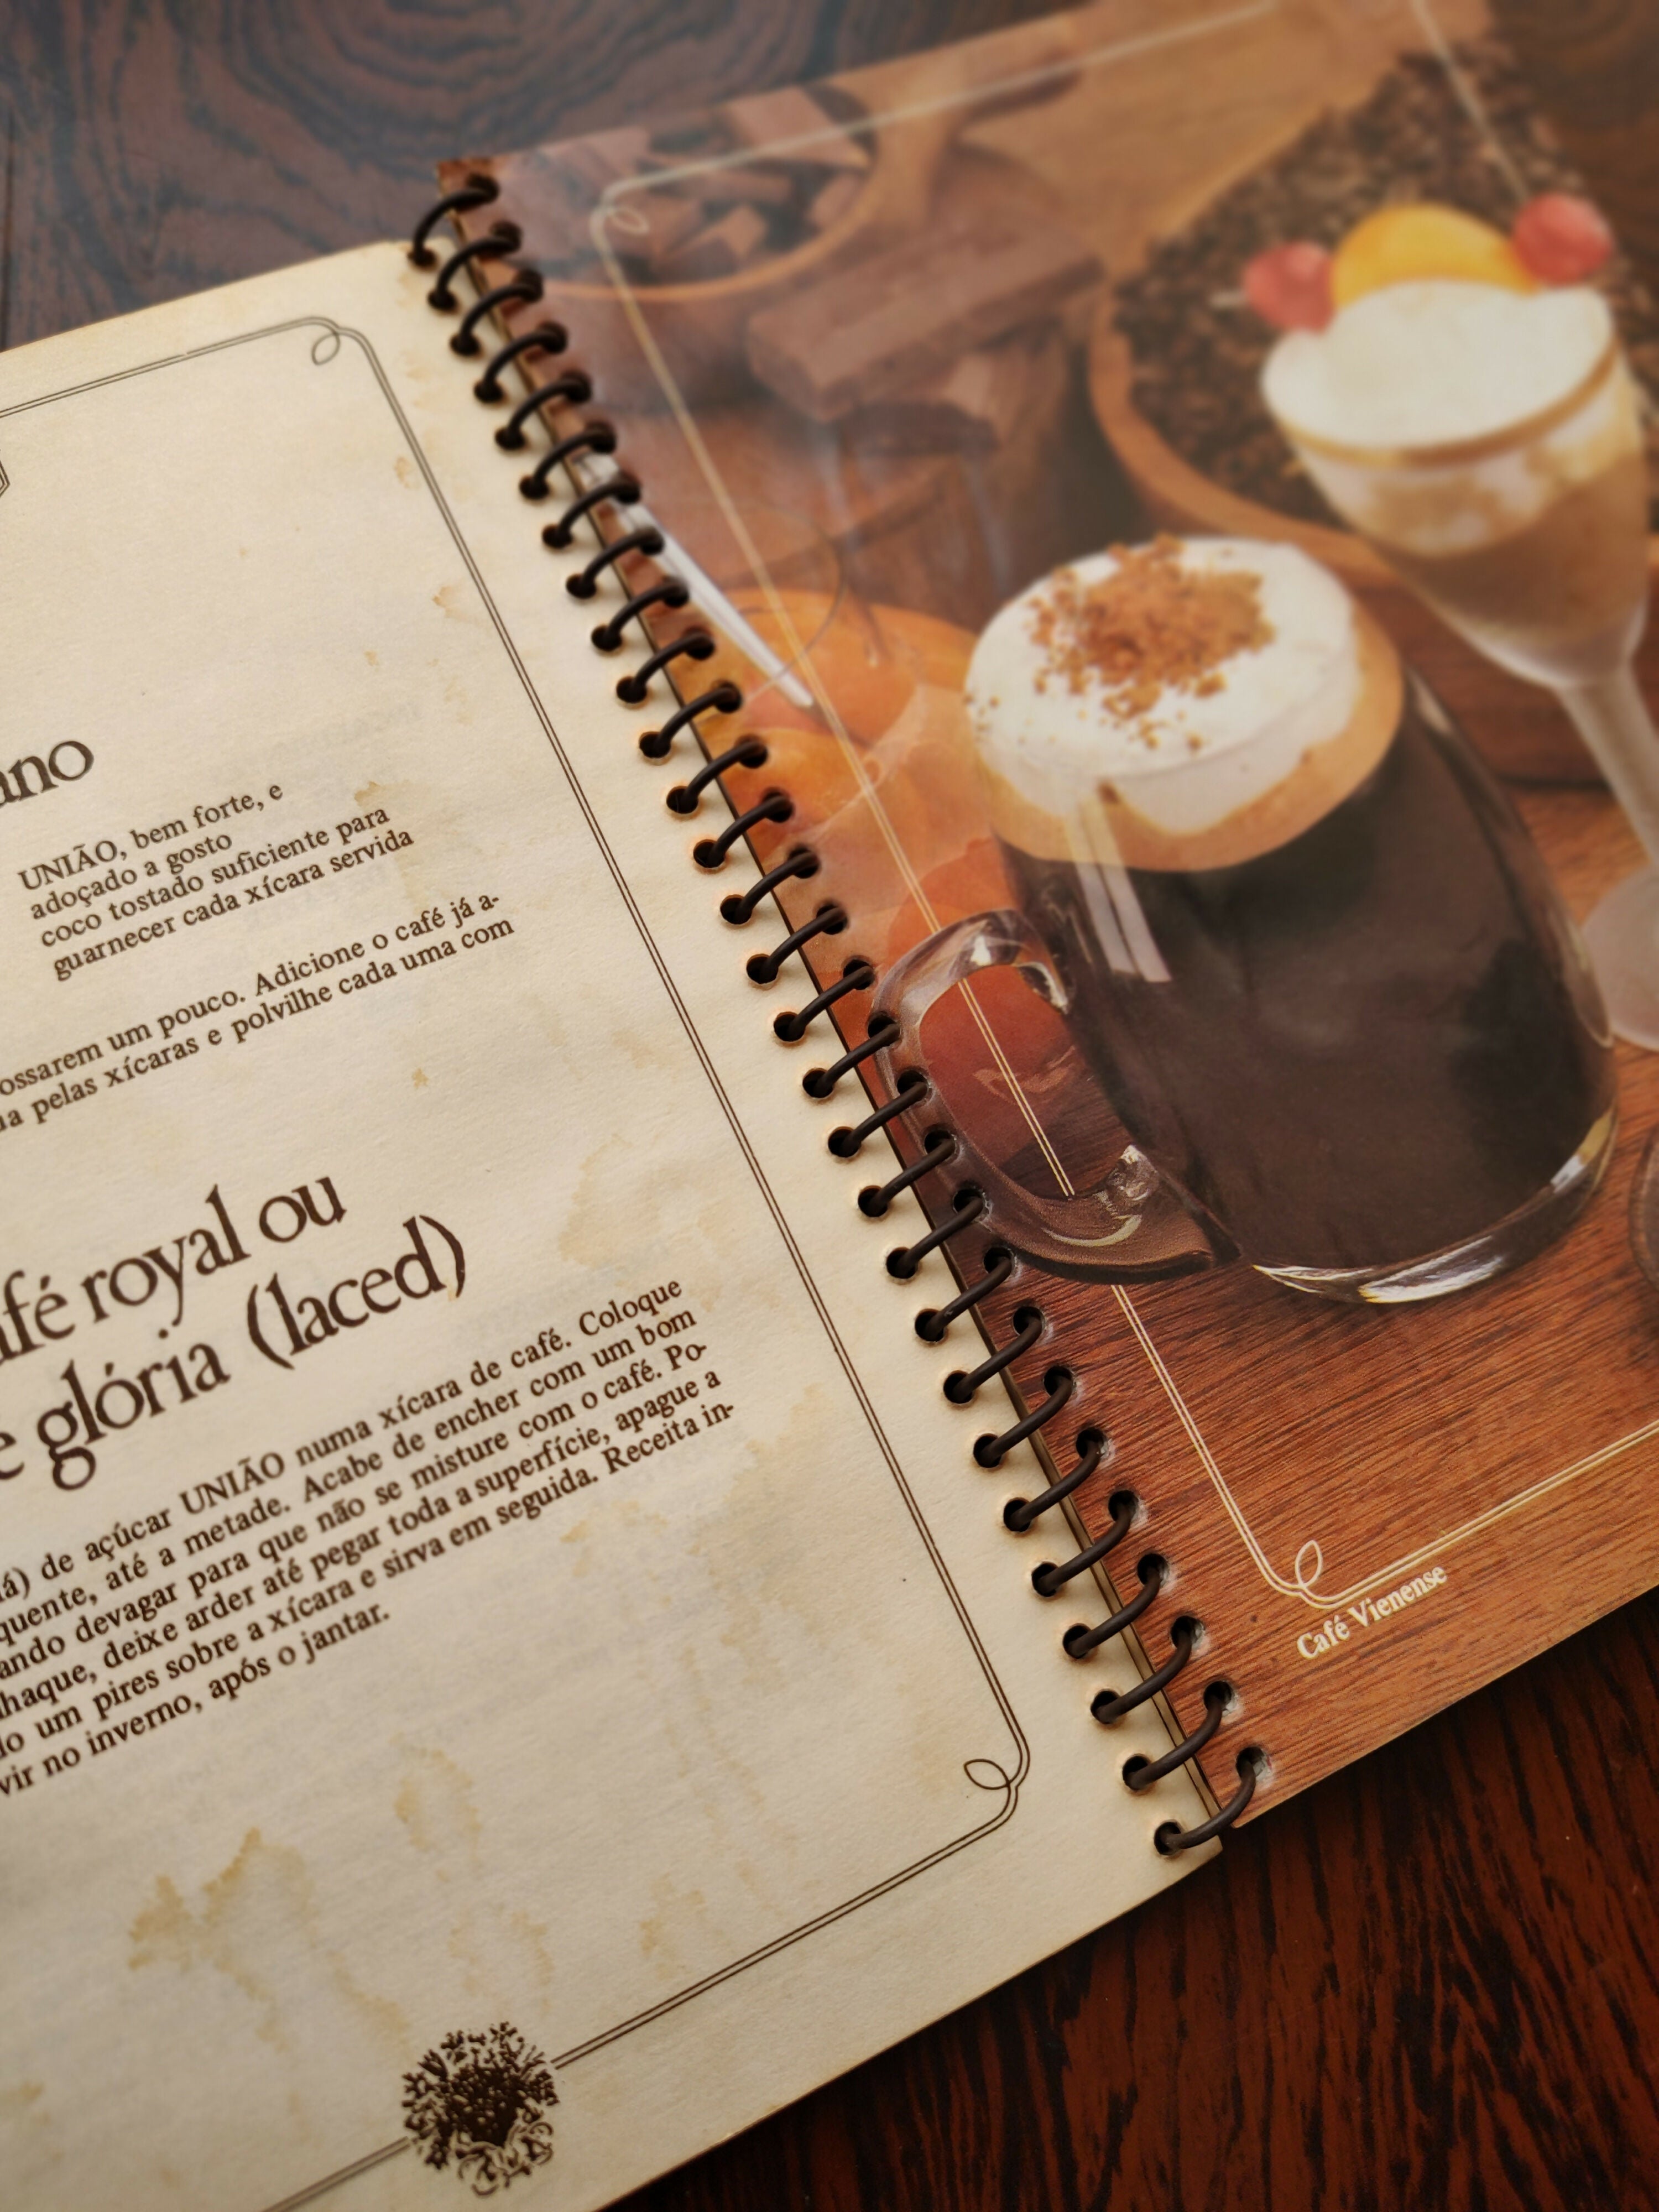 UNIÃO, bem forte, e
adoçado a gosto
coco tostado suficiente para
guarnecer cada xícara servida
um pouco. Adicione o café já a-
pelas xícaras e polvilhe cada uma com
royal ou
glória (laced)
de açúcar UNIÃO numa xícara de café. Coloque
quente, até a metade. Acabe de encher com um bom
devagar para que não se misture com o café. Po-
deixe arder até pegar toda a superfície, apague a
um pires sobre a xícara e sirva em seguida. Receita in-
no inverno, após o jantar.
Café Vienense